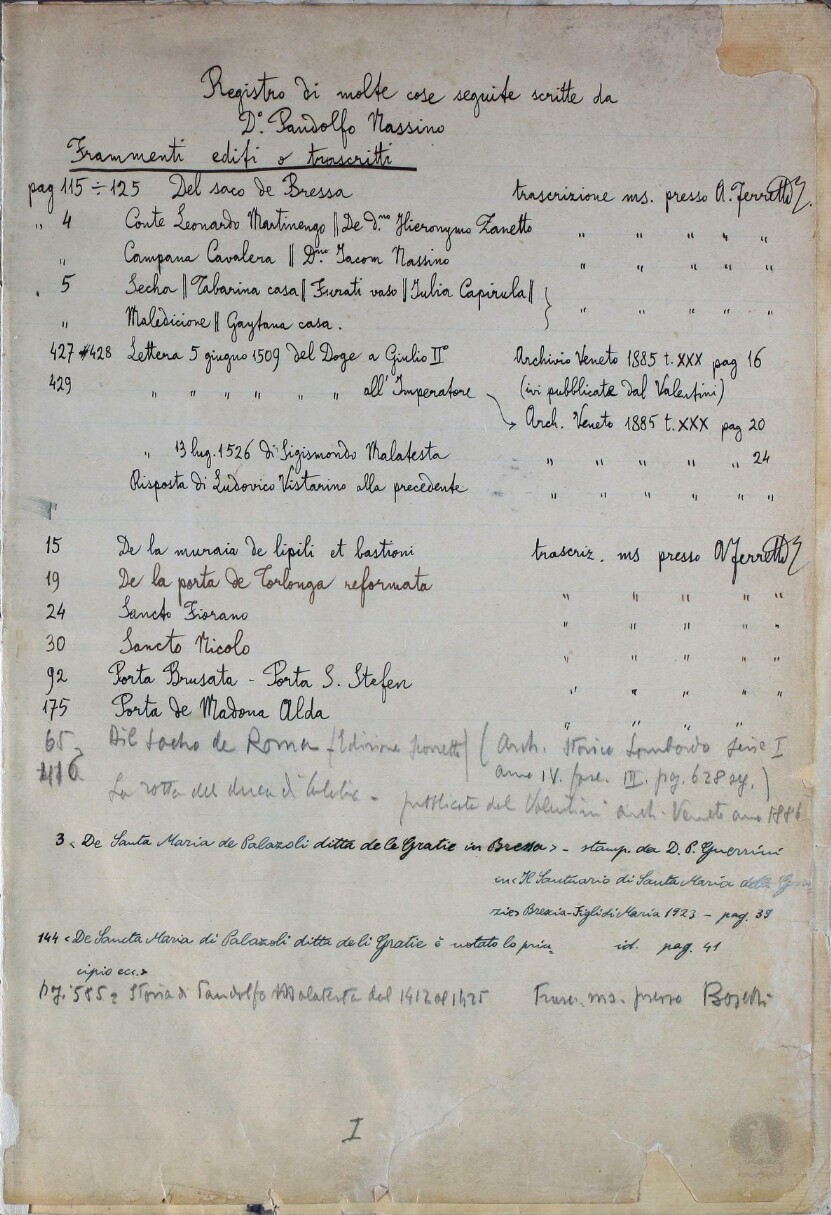 Registro di molte cose seguite scritte da
D.º Pandolfo Nassino
Frammenti editi o trascritti
pag 115 ÷ 125 Del saco de Bressa trascrizione ms. presso A. Ferretti
„ 4 Conte Leonardo Martinengo || De d.no Hieronymo Zanetto „ „ „ „ „
„ Campana Cavalera || D.no Jacom Nassino „ „ „ „ „
„ 5 Secha || Tabarina casa || Furati vaso || Iulia Capirula ||
„ Maledicione || Gaytana casa. „ „ „ „ „
427 # 428 Lettera 5 giugno 1509 del Doge a Giulio IIº Archivio Veneto 1885 t. XXX pag 16
429 „ „ „ „ „ „ all'Imperatore (ivi pubblicate dal Valentini)
Arch. Veneto 1885 t. XXX pag 20
„ 13 lug. 1526 di Sigismondo Malatesta „ „ „ „ 24
Risposta di Ludovico Vistarino alla precedente „ „ „ „ „ „
„
15 De la muraia de lipili et bastioni trascriz. ms presso A Ferretti
19 De la porta de Torlonga reformata „ „ „ „ „
24 Sancto Fiorano „ „ „ „ „
30 Sancto Nicolo „ „ „ „ „
92 Porta Brusata - Porta S. Stefen „ „ „ „ „
175 Porta de Madona Alda „ „ „ „
65 Dil sacho de Roma (Edizione (Arch. Storico Lombardo Serie I
416 anno IV. fasc. III. pg. 628 sg.)
La rotta del duca di - pubblicate dal Valentini arch. Veneto ano 1886
3 < De Santa Maria de Palazoli ditta dele Gratie in Bressa > - stamp. da D. P. Guerrini
in < Il Santuario di Santa Maria delle Gra
zie > Brexia - Figli di Maria 1923 - pag. 39
144 < De Sancta Maria di Palazoli ditta deli Gratie è notato lo prin id. pag. 41
cipio ecc. >
pg. 585 Storia di Pandolfo Malatesta dal 1412 al 1425 Trascr. ms. presso Boselli
I